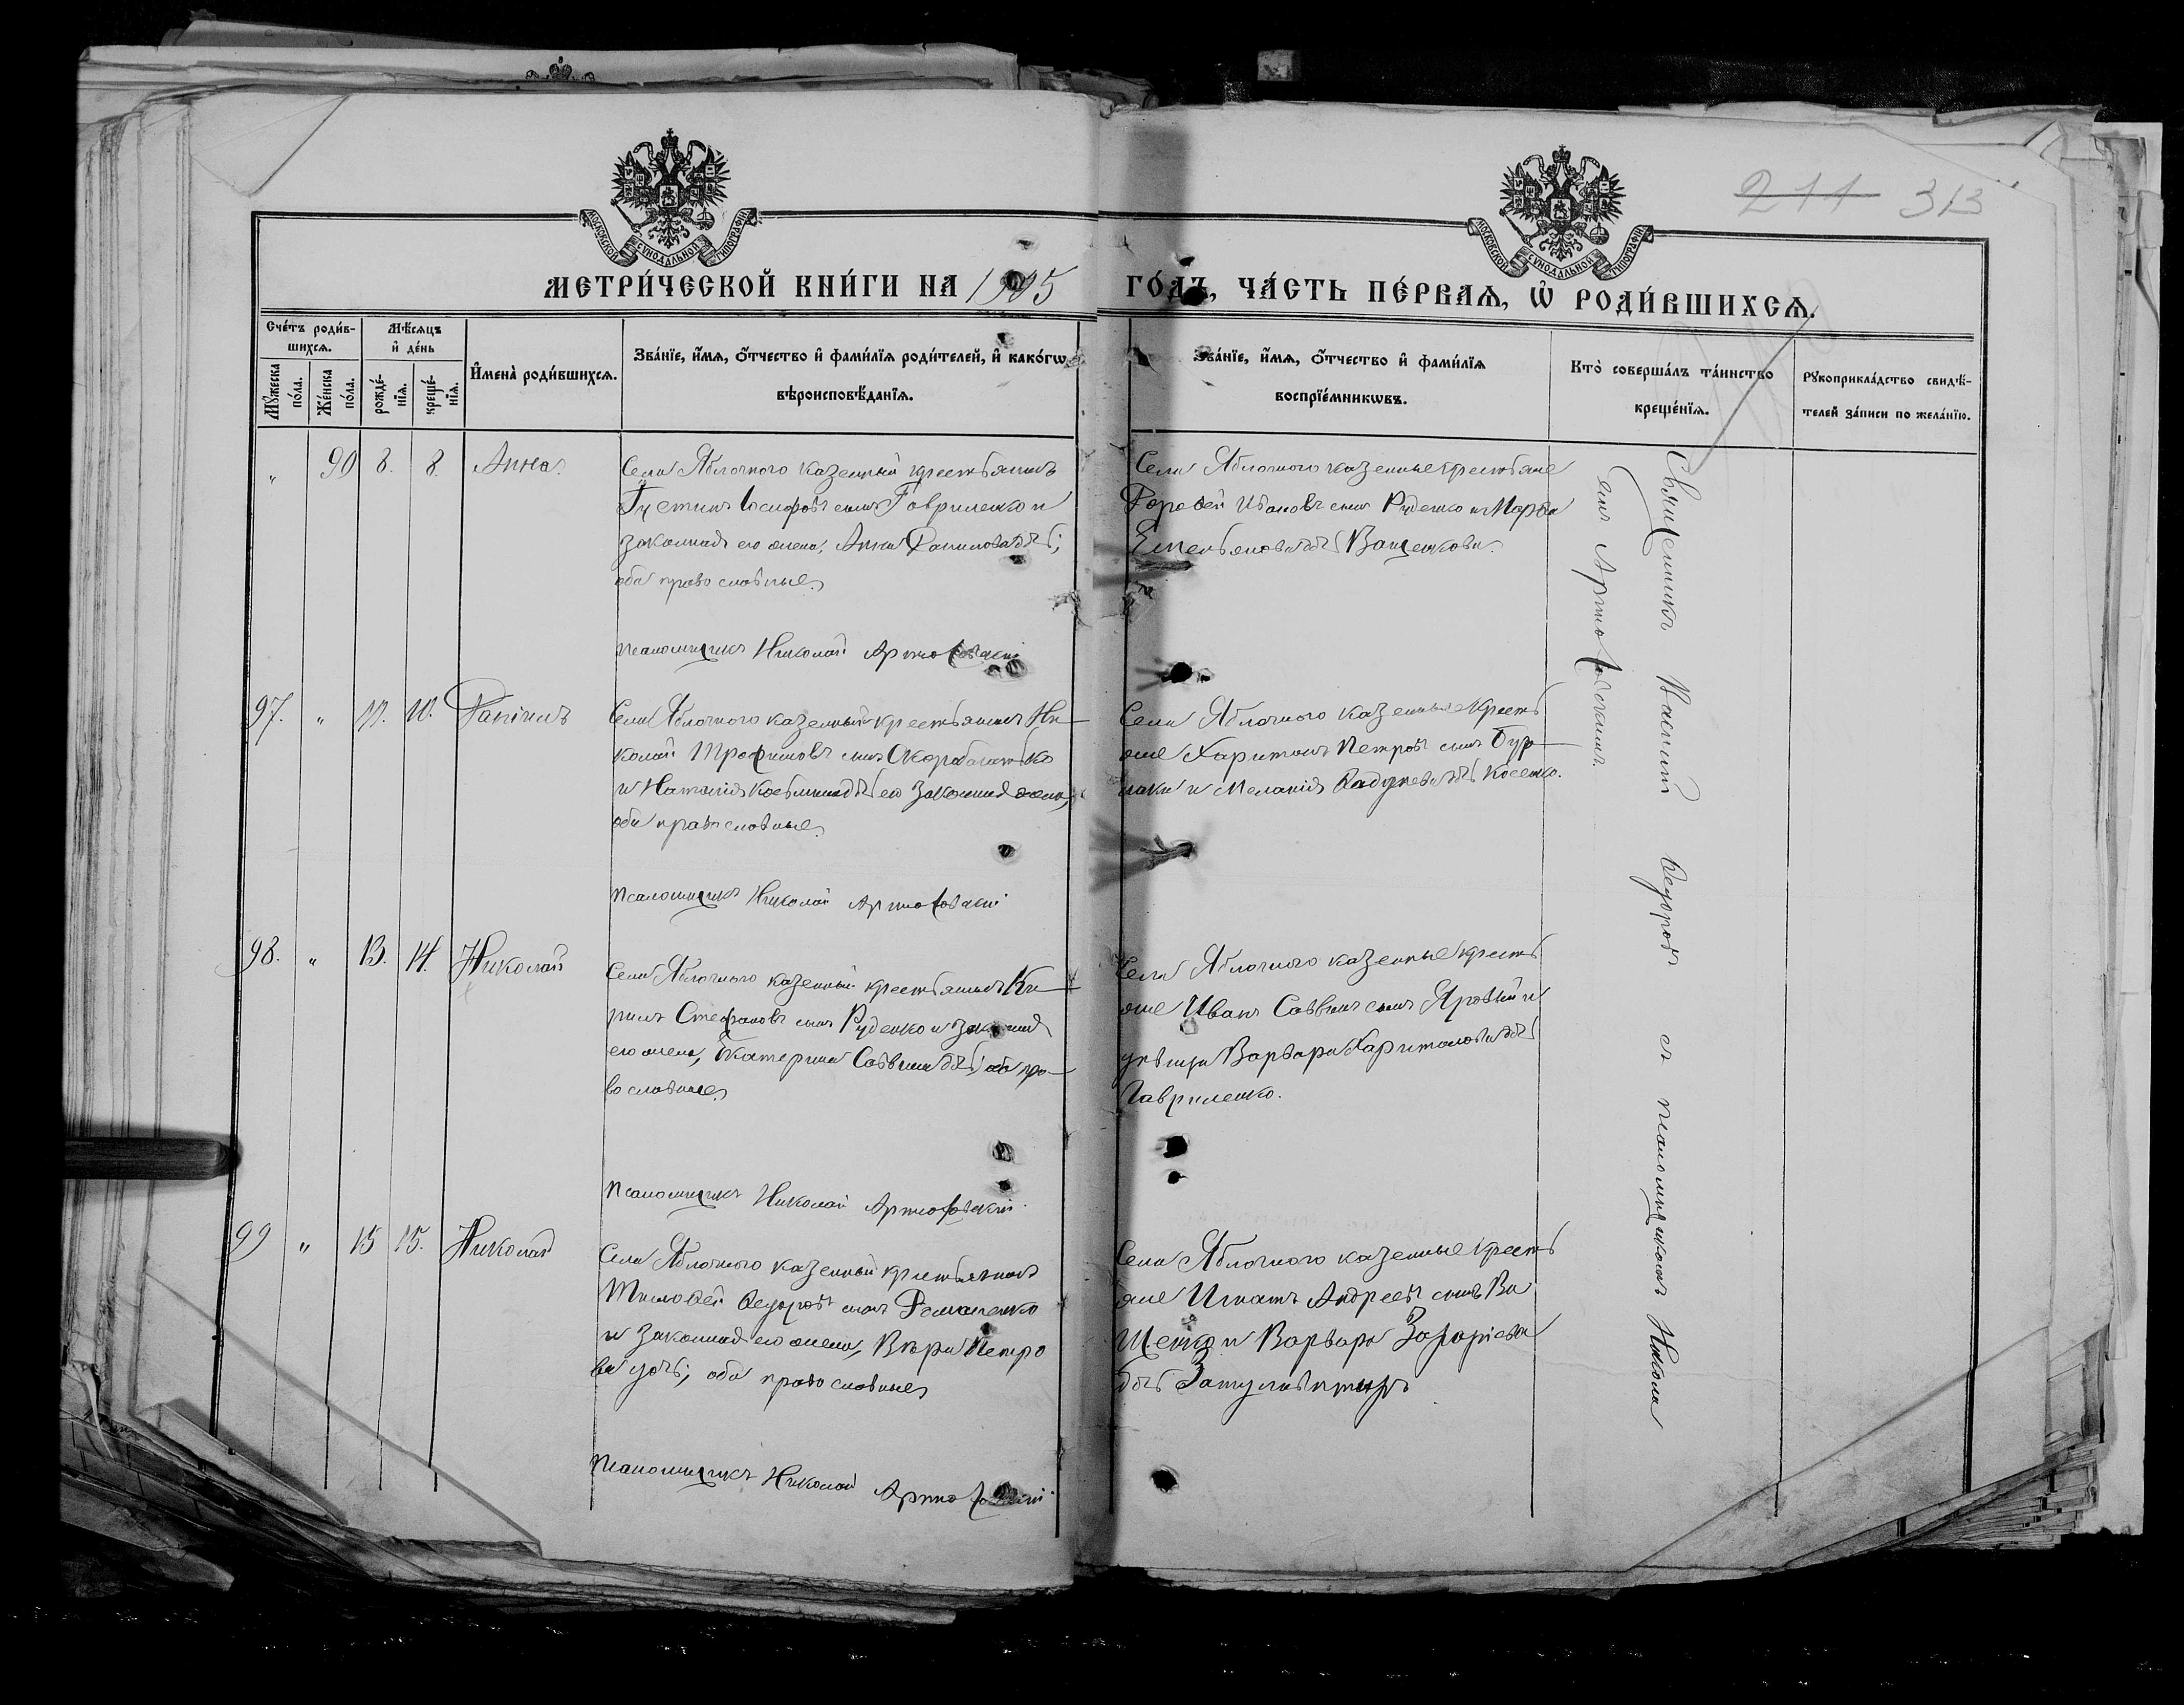 211 313
МОСКОВСКОЙ СѴНОДАЛЬНОЙ ТИПОГРАФІИ
МОСКОВСКОЙ СѴНОДАЛЬНОЙ ТИПОГРАФІИ
МЕТРИ́ЧЕСКОЙ КНИ́ГИ НА 1905 ГО́ДЪ, ЧА́СТЬ ПЕ́РВАѦ, Ѽ РОДИ́ВШИХСѦ.
Сче́тъ роди́в-
шихсѧ.
Мѹ́жеска по́ла.
Же́нска по́ла.
Мѣ́сяцъ
и҆ де́нь
рожде́-
нїѧ.
креще́-
нїѧ.
И҆мена̀ роди́вшихсѧ.
Зва́нїе, и҆́мѧ, о҆́тчество и҆ фами́лїѧ роди́телей, и҆ како́гѡ
вѣроисповѣ́данїѧ.
Зва́нїе, и҆́мѧ, о҆́тчество и҆ фами́лїѧ
воспрїе́мникѡвъ.
Кто̀ соверша́лъ та́инство
креще́нїѧ.
Рѹкоприкла́дство свидѣ́-
телей за́писи по жела́нїю.
" 90 8. 8. Анна.
Села Яблочного казенный крестьянинъ
Густинъ Іосифовъ сынъ Гавриленко и
законная его жена, Анна Данилова дчь;
оба православные.
Псаломщикъ Николай Артюховскій
Села Яблочного казенные крестьяне
Іванов сынъ Руденко и Марфа
Емельянова дчь Ващенкова.
97. " 10. Даніилъ
Села Яблочного казенный крестьянинъ Ни-
колай Трофимовъ сынъ Скоробагатько
и Наталія Косьмина дчь его законная жена,
оба православные.
Псаломщикъ Николай Артюховскій
Села Яблочного казенные кресть
яне Харитонъ Петровъ сынъ Бур-
лака и Меланія дчь Косенко.
98. " 13. 14. Николай
Села Яблочного казенный крестьянинъ Ки-
рилъ Стефановъ сынъ Руденко и законная
его жена, Екатерина Саввина дчь; оба пра-
вославные.
Псаломщикъ Николай Артюховскій.
Села Яблочного казенные кресть
яне Иванъ Саввинъ сынъ Яровый и
дѣвица Варвара Харитонова дчь
Гавриленко.
99 " 15 15. Николай
Села Яблочного казенный крестьянинъ
Тимофей Ѳедоровъ сынъ Романенко
и законная его жена, Вѣра Петро
ва дчь; оба православные
Псаломщикъ Николай Артюховскій
Села Яблочного казенные кресть
яне Игнатъ Андреевъ сынъ Ва
щенко и Варвара Захаріева
дчь
Священникъ Василій Ѳедоровъ съ псаломщикомъ Никола
емъ Артюховскимъ.